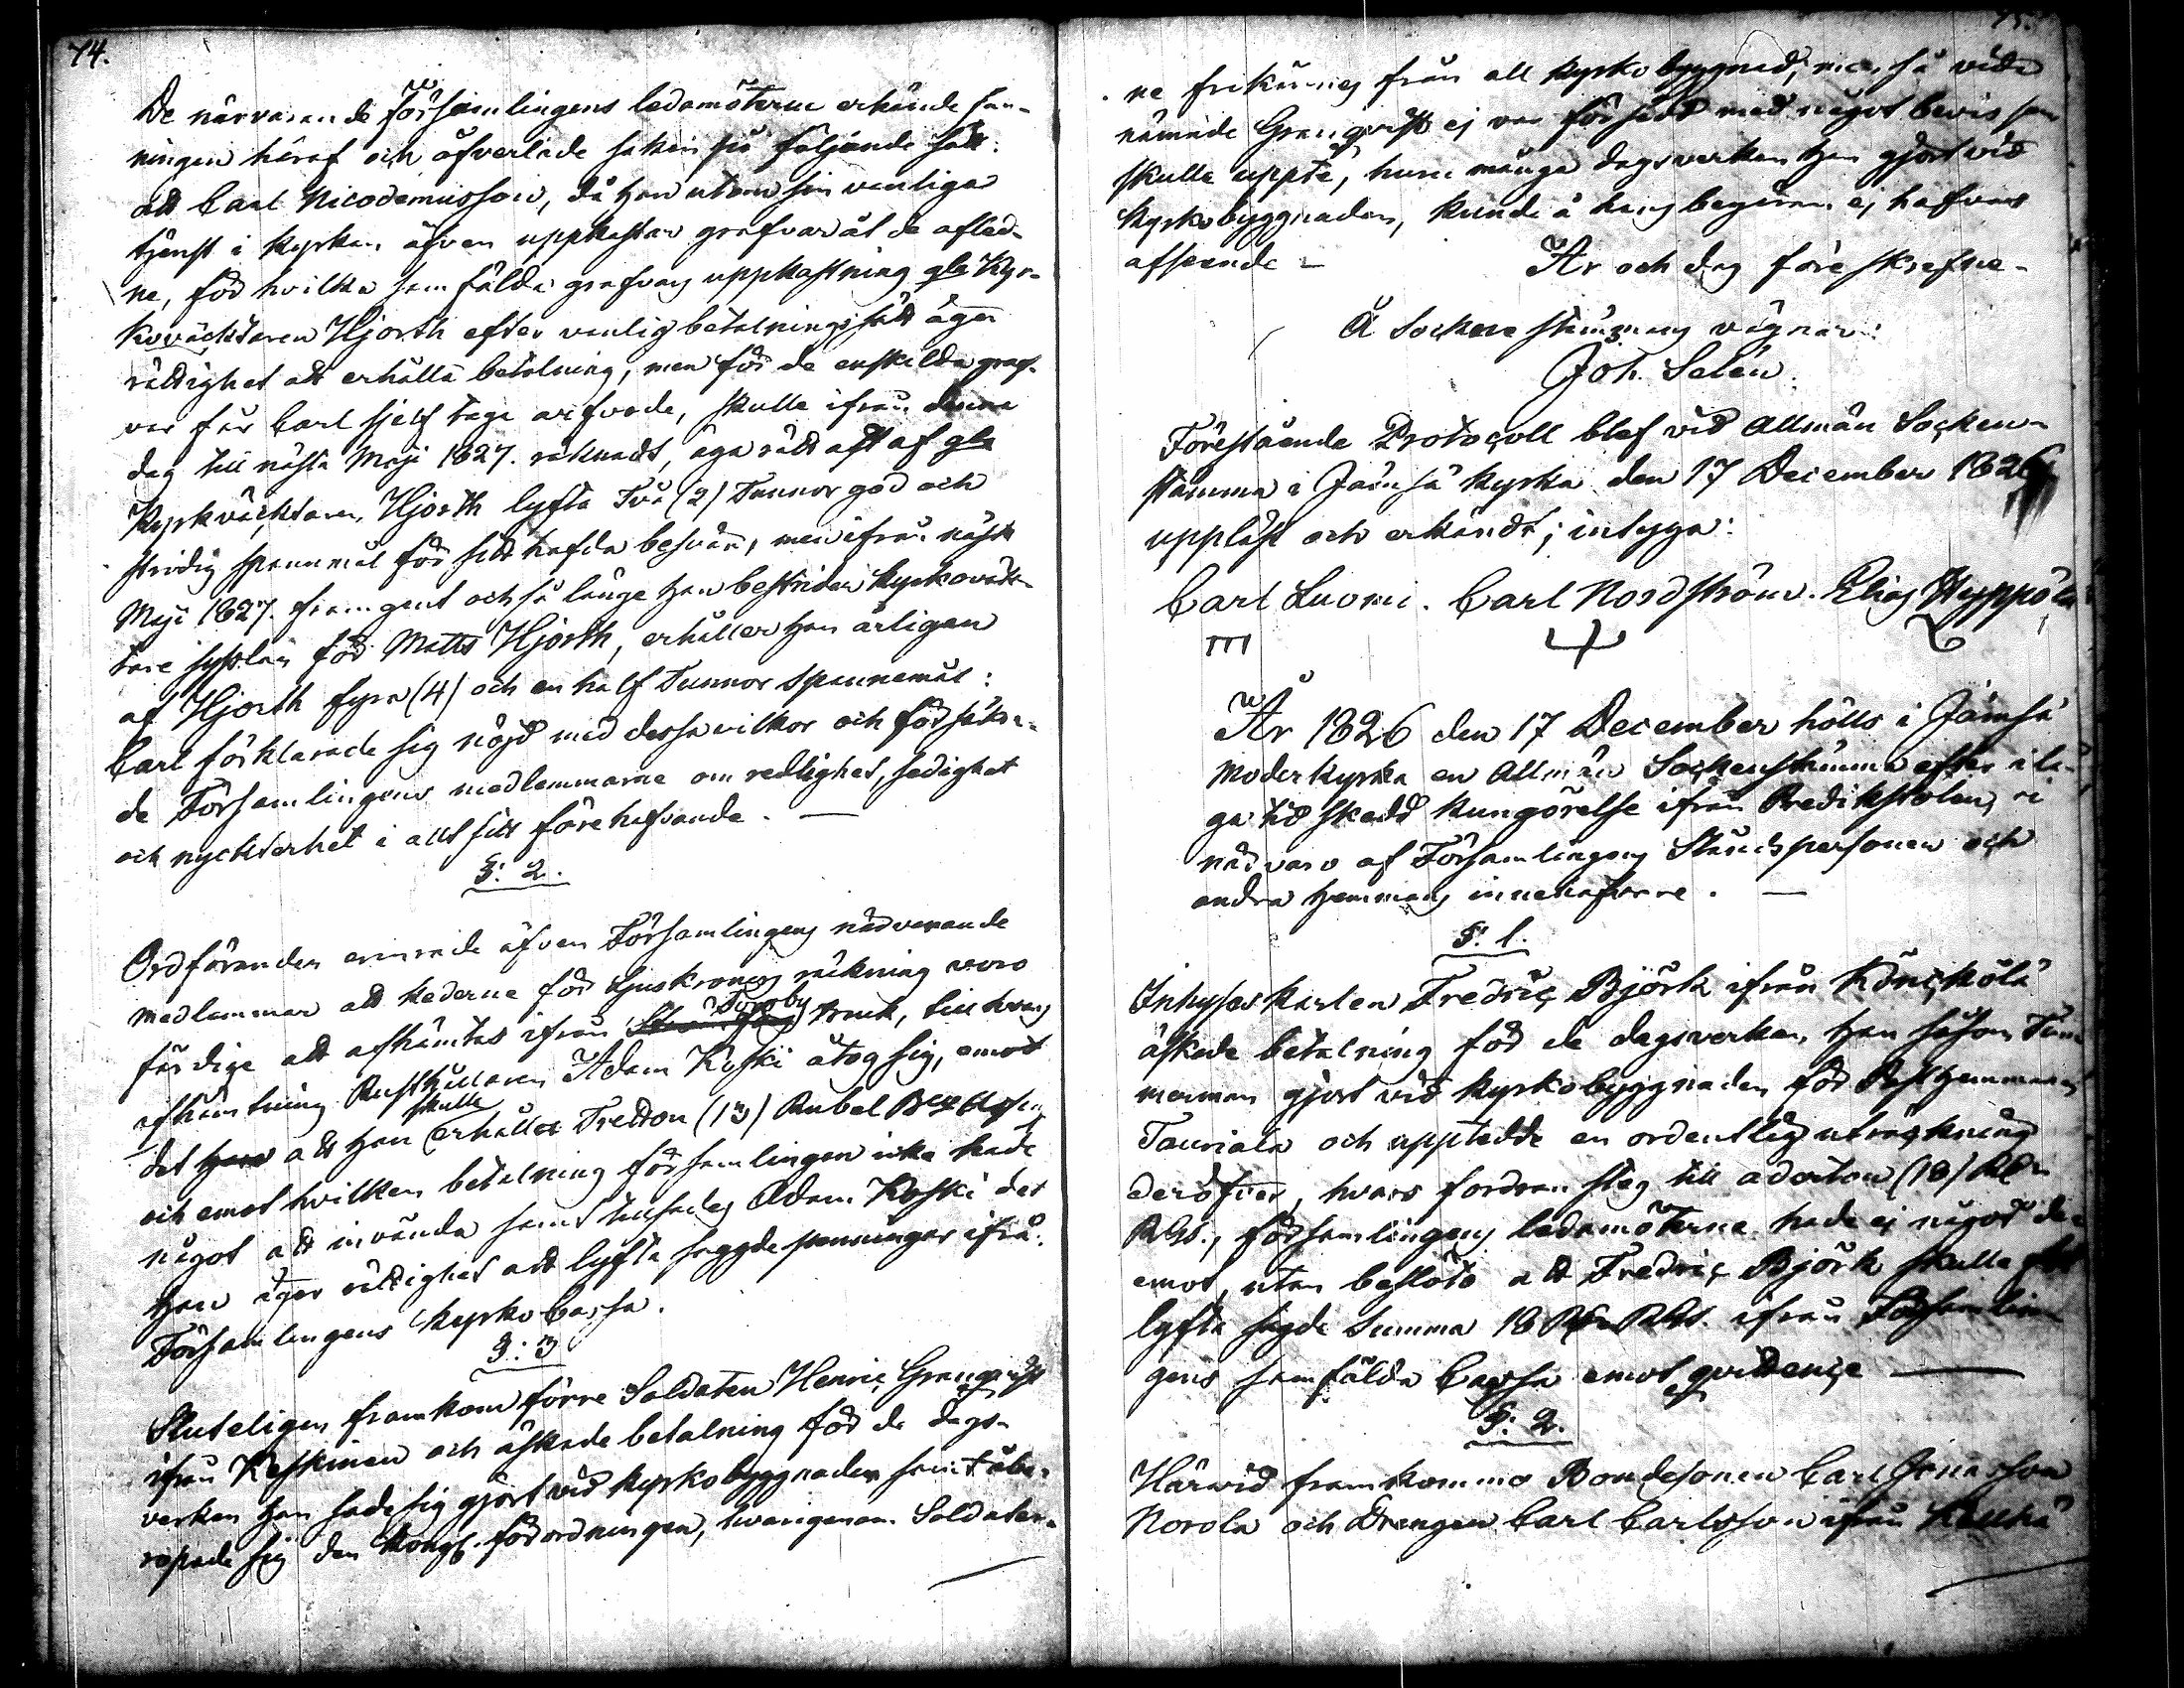 74.
De närvarande Församlingens ledamöterne erkände san-
ningen häraf och öfverlade saken på följande sätt:
att Carl Nicodemusson, då han utom sin vanliga
tjenst i kyrkan äfven uppkastar grafvar åt de afled-
ne, för hvilka samfälda grafvars uppkastning gla Kyr-
koväcktaren Hjorth efter vanlig betalningssätt äger
rättighet att erhålla betalning, men för de enskilda graf-
var får Carl sjelf taga arfvode, skulle ifrån denna
dag till nästa Maji 1827. räknadt, äga rätt att af gla
Kyrkväcktaren Hjorth lyfta Två (2) Tunnor god och
stridig spannmål för sitt hafda besvär, men ifrån nästa
Maji 1827. framgent och så länge han bestrider Kyrkoväck-
tare sysslan för Matts Hjorth, erhåller han årligen
af Hjorth fyra (4) och en half Tunnor Spannemål:
Carl förklarade sig nöjd med dessa vilkor och försäkra-
de Församlingens medlemmarne om redlighet, sedighet
och nyckterhet i allt sitt förehafvande. —
§: 2.
Ordföranden ernrade äfven Församlingens närvarande
medlemmar att kederne för Ljuskronans räkning voro
färdige att afhämtas ifrån bruk, till hvars
afhämtning Rusthållaren Adam Koski åtog sig, emot
skulle
det han att han erhålla Tretton (13) Rubel Bco Assign.
och emot hvilken betalning församlingen icke hade
något att invända samt tillsades Adam Koski det
han äger rättighet att lyfta sagde penningar ifrån
Församlingens Kyrko Cassa.
§: 3
Sluteligen framkom förre Soldaten Henric Granqvist
ifrån Keskinen och äskade betalning för de dags-
verken han sade sig gjort vid kyrkobyggnaden samt åbe-
ropade sig den Kongl. förordningen, hvarigenom Soldater-
ne frikännes från all Kyrko byggnad, men så vida
nämnde Granqvist ej var försedd med något bevis som
skulle uppte, huru många dagsverken han gjort vid
Kyrkobyggnaden, kunde å hans begäran ej hafvas
afseende – År och dag föreskrefne-
Å Sockenestämmans vägnar:
Joh. Selén.
Förestående Protocoll blef vid Allmän Socken-
stämma i Jämsä Kyrka den 17 December 1826
uppläst och erkändt; intyga:
Carl Luomi. Carl Nordström. Elias Hyppölä
År 1826 den 17 December hölls i Jämsä
Moderkyrka en Allmän Sockenstämma efter i la-
ga tid skedd kungörelse ifrån Predikstolen, i
närvaro af Församlingens Ståndspersoner och
andra hemmans innehafvare. —
§. 1.
Inhyses karlen Fredric Björk ifrån Könckölä
äskade betalning för de dagsverken han såsom Tim-
merman gjort vid Kyrkobyggnaden för Rusthemmanet
Tauriala och uppledde en ordentlig uträkning
deröfver, hvars fordran steg till aderton (18) Rbr
RGs., församlingens ledamöterne hade ej något der-
emot, utan beslöto att Fredric Björk skulle få
lyfta sagde Summa 18 Rbr RGs. ifrån Församlin-
gens samfälda Cassa emot qvittence —
§: 2.
Härvid framkommo Bondesonen Carl Jonasson
Norola och Drengen Carl Carlsson ifrån